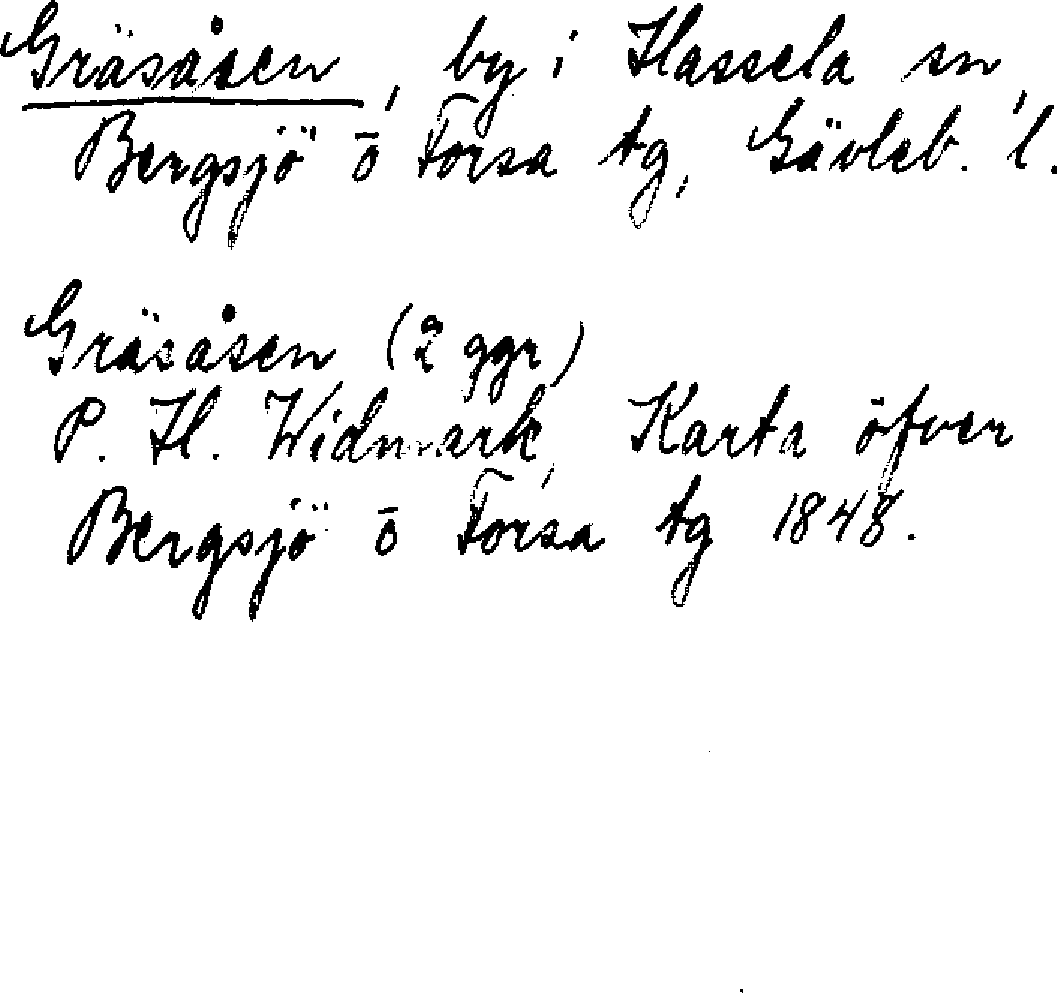 Gräsåsen, by i Hassela sn,
Bergsjö o Forsa tg, Gävleb. l.
Gräsåsen (2 ggr)
P. H. Widmark, Karta öfver
Bergsjö o Forsa tg 1848.